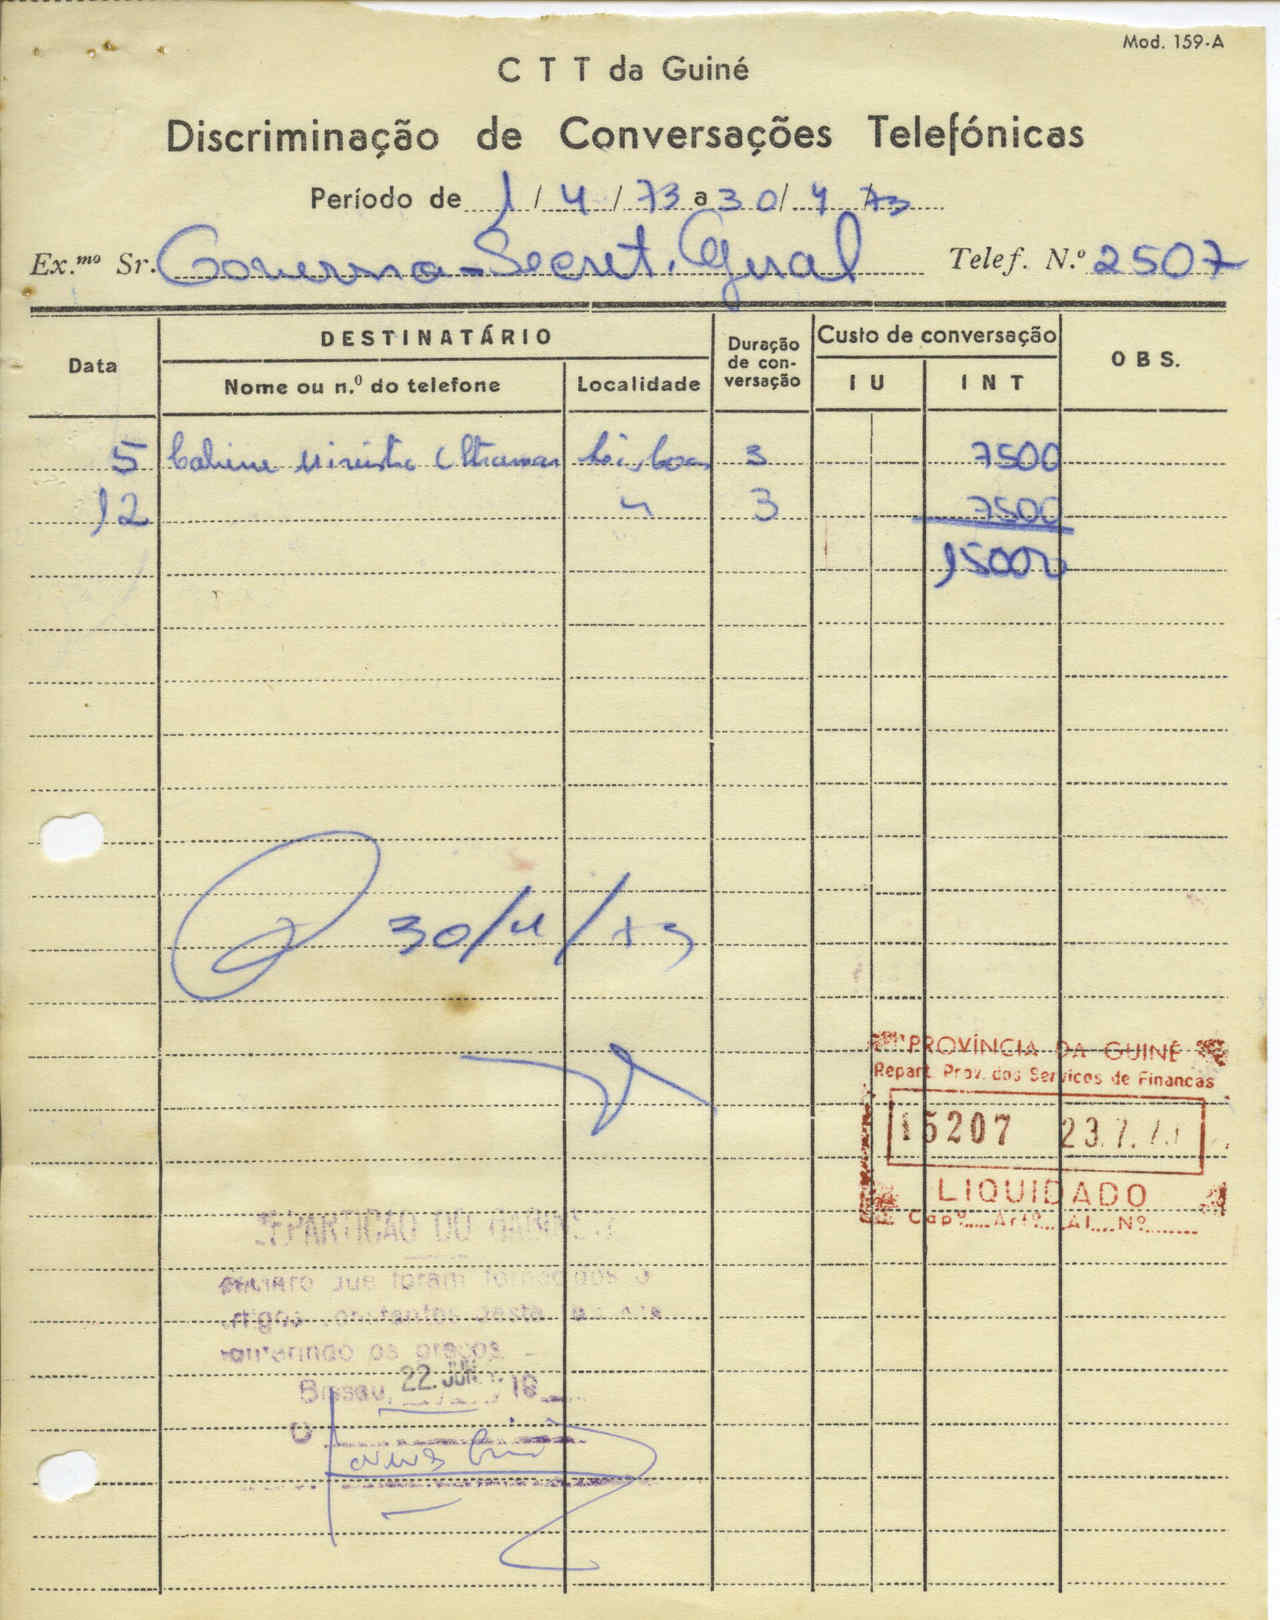 Mod. 159-A
C T T da Guiné
Discriminação de Conversações Telefónicas
Período de 1 / 4 / 73 a 30 / 4 / 73
Ex.mo Sr. Governo - Secret. Geral Telef. N.º 2507
Data
DESTINATÁRIO
Nome ou n.º do telefone
Localidade
Duração de conversação
Custo de conversação
I U
I N T
O B S.
5 Gabine Ministro Ultramar Lisboa 3 7500
12 " 3 7500
15000
30/4/73
PROVÍNCIA DA GUINÉ
Repart. Prov. dos Serviços de Finanças
15207 23.7.73
LIQUIDADO
Capº.... Artº.... Al.... Nº........
REPARTIÇÃO DO GABINETE
que foram fornecidos o
artigos constantes desta
conferindo os preços
Bissau, 22. JUN. 19
O